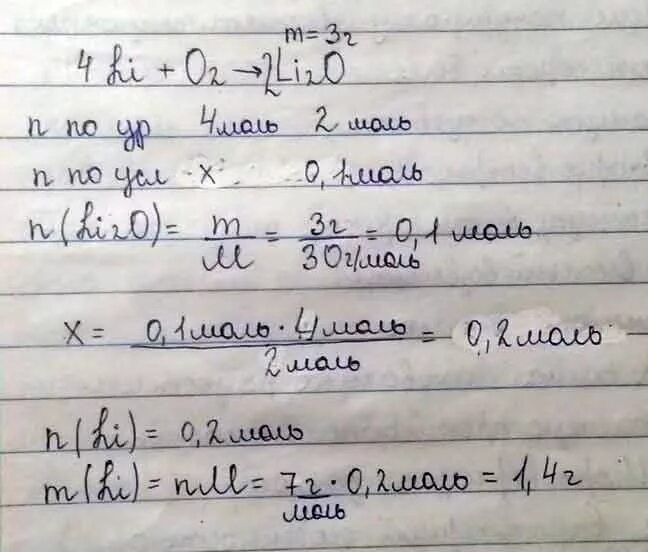 m = 3г
4Li + O2 → 2Li2O
n по ур 4моль 2 моль
n по усл x 0,1моль
n(Li2O) = m/M = 3г/30г/моль = 0,1 моль
x = 0,1моль · 4моль/2моль = 0,2моль
n(Li) = 0,2моль
m(Li) = nM = 7г/моль · 0,2моль = 1,4г